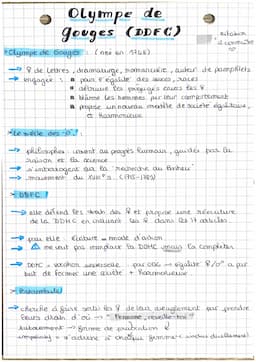 Olympe de
Gouges (DDFC)
Olympe de Gouges : (née en 1748)
→ ♀ de lettres, dramaturge, romancière, auteur de pamphlets
→ engagée : pour l'égalité des sexes, races
détruire les préjugés envers les ♀
blâme les hommes, par leur comportement
propose un nouveau modèle de société égalitaire,
et harmonieuse
Le siècle des
→ philosophes croient au progrès humain, guidés par la
raison et la science
→ s'interrogent sur la recherche du bonheur
→ mouvement du XVIII° s. (1715-1789)
DDFC :
→ elle défend les droits des ♀ et propose une réécriture
de la DDHC en incluant les ♀ dans les 17 articles
→ pour elle écriture = mode d'action
→ ne veut pas remplacer la DDHC mais la compléter
→ DDFC = vocation universelle pour ODG → égalité ♀/♂ a pour
but de former une unité + harmonieuse
Postambule
→ cherche à faire sortir les ♀ de leur aveuglement pour prendre
leurs droits d'où → "Femme, réveille-toi"
→ s'adresse à chaque femme